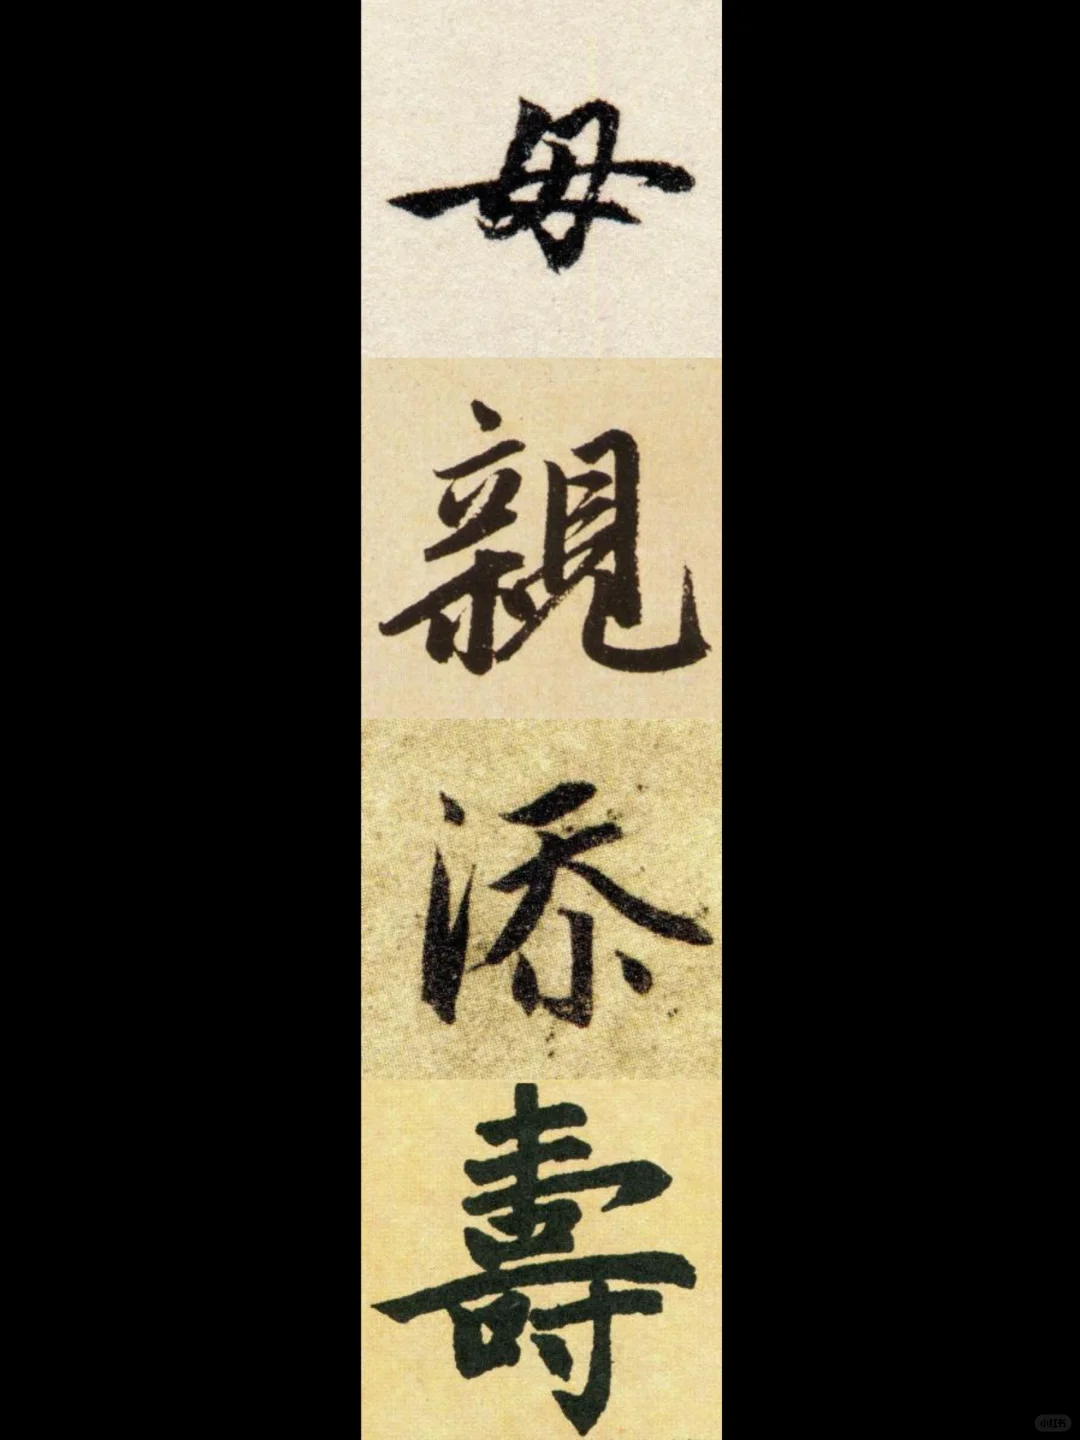 母
親
添
壽
小红书